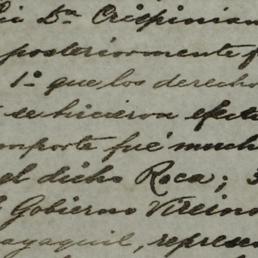 Dª Crispinian
posteriormente f
1º que los derecho
se hicieron efecti
mporte fué much
el dicho Roca; 3
Gobierno Vireino
ayaquil, represe